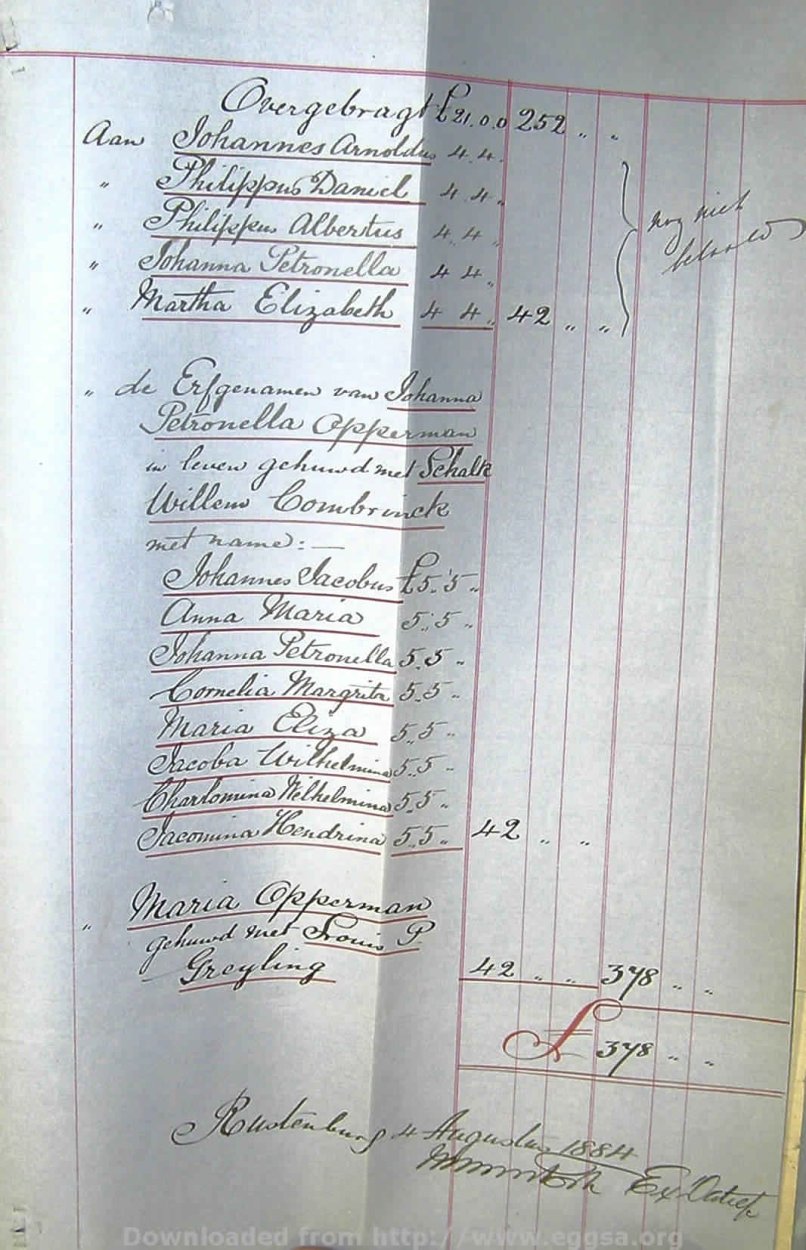 Overgebragt £21.0.0 252 " "
Aan Johannes Arnoldus 4.4.
" Philippus Daniel 4 4 "
" Philippus Albertus 4 4 "
" Johanna Petronella 4 4 "
" Martha Elizabeth 4 4 " 42 " "
nog niet
betaald
" de Erfgenamen van Johanna
Petronella Opperman
in leven gehuwd met Schalk
Willem Combrinck
met name:—
Johannes Jacobus £5.5 "
Anna Maria 5.5 "
Johanna Petronella 5.5 "
Cornelia Margrita 5.5 "
Maria Eliza 5.5 "
Jacoba Wilhelmina 5.5 "
Charlomina Wilhelmina 5.5 "
Jacomina Hendrina 5.5 " 42 " "
" Maria Opperman
gehuwd met Louis P.
Greyling 42 " " 378 " "
£ 378 " "
Rustenburg 4 Augustus 1884
Ex. Datief
Downloaded from http://www.eggsa.org